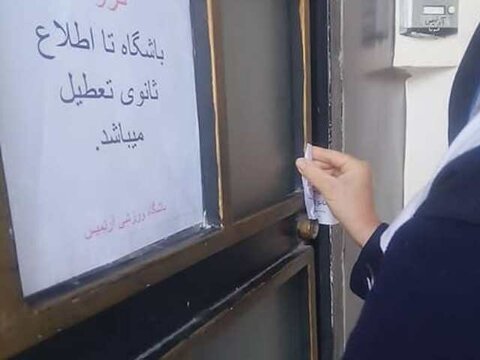 باشگاه تا اطلاع
ثانوی تعطیل
میباشد.
باشگاه ورزشی ارتمیس